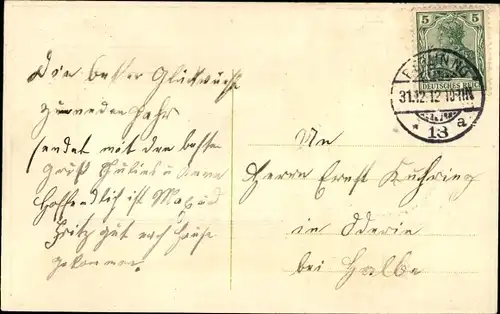 Die besten Glückwünsche
zum neuen Jahr
sendet mit den besten
Gruß
Hoffentlich ist Max und
Fritz gut nach Hause
gekommen.
5
DEUTSCHES REICH
31.12.12
* 13 a
An
Herrn Ernst Kuhring
in Oderin
bei Halbe